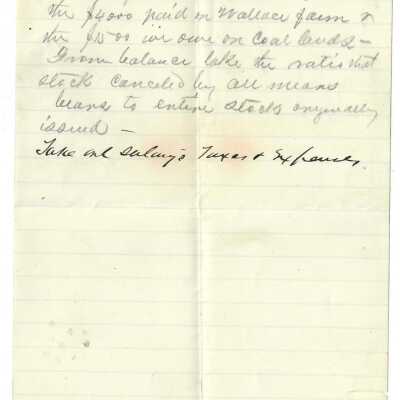 the $4000 paid on Wallace farm &
the $1500 we owe on Coal lands -
From balance take the ratio that
stock canceled by all means
bears to entire stocks originally
issued -
Take out Salary's Taxes & Expenses.